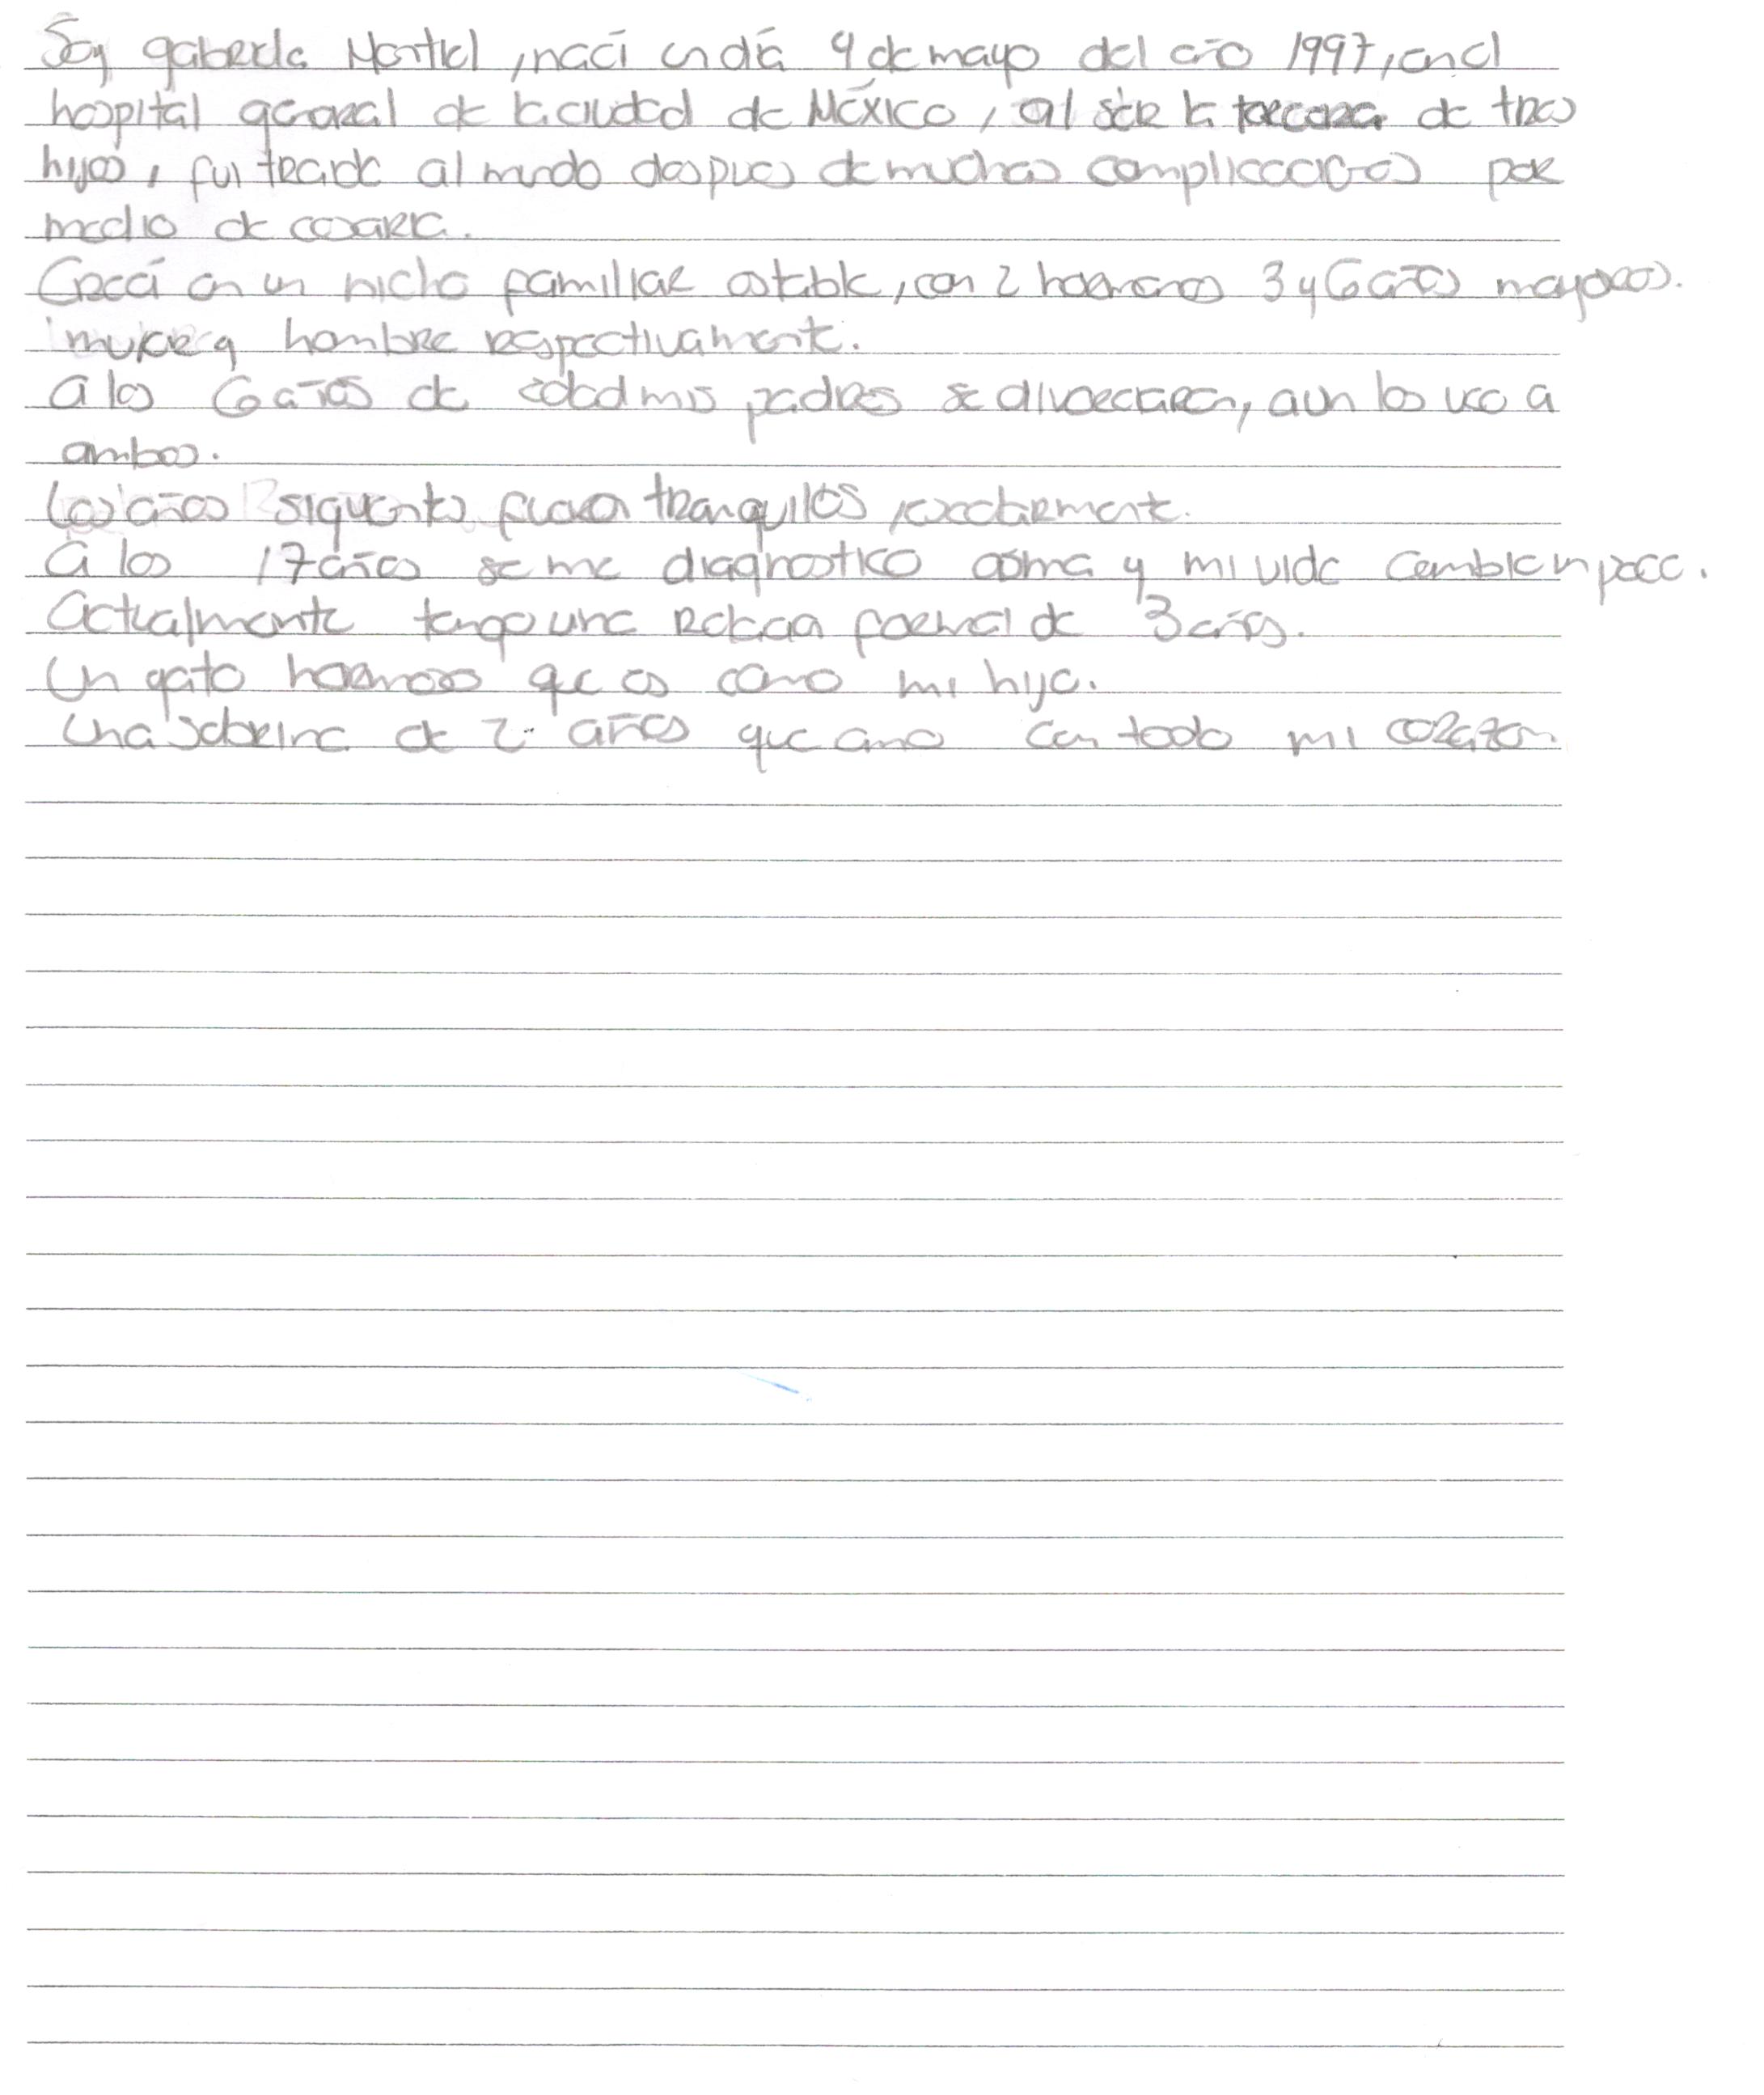 Soy gabriela Montiel, nací un día 9 de mayo del año 1997, en el
hospital general de la ciudad de México, al ser la tercera de tres
hijos, fui traida al mundo despues de muchas complicaciones por
medio de cesarea.
Creci en un nicho familiar estable, con 2 hermanos 3 y 6 años mayores.
mujer y hombre respectivamente.
a los 6 años de edad mis padres se divorciaron, aun los veo a
ambos.
Los años siguientes fueron tranquilos,
a los 17 años se me diagnostico asma y mi vida cambio un poco.
actualmente tengo una relacion formal de 3 años.
Un gato hermoso que es como mi hijo.
Una sobrina de 2 años que amo con todo mi corazon.